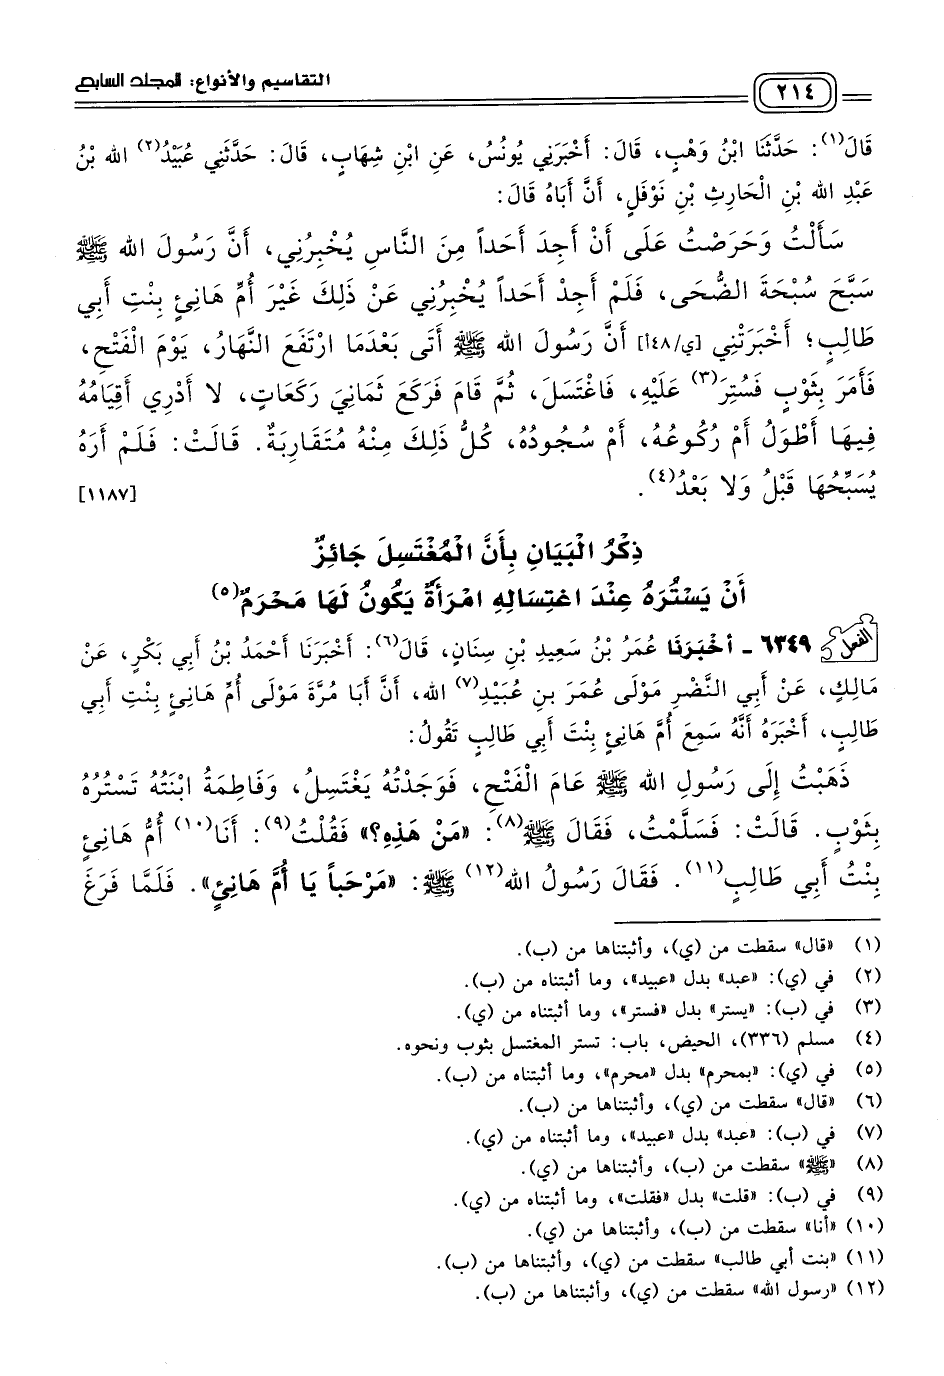 التقاسيم والأنواع: المجلد السابع
٢١٤
قَالَ(١): حَدَّثَنَا ابْنُ وَهْبٍ، قَالَ: أَخْبَرَنِي يُونُسُ، عَنِ ابْنِ شِهَابٍ، قَالَ: حَدَّثَنِي عُبَيْدُ(٢) الله بْنُ
عَبْدِ الله بْنِ الْحَارِثِ بْنِ نَوْفَلٍ، أَنَّ أَبَاهُ قَالَ:
سَأَلْتُ وَحَرَصْتُ عَلَى أَنْ أَجِدَ أَحَداً مِنَ النَّاسِ يُخْبِرُنِي، أَنَّ رَسُولَ الله ﷺ
سَبَّحَ سُبْحَةَ الضُّحَى، فَلَمْ أَجِدْ أَحَداً يُخْبِرُنِي عَنْ ذَلِكَ غَيْرَ أُمِّ هَانِئٍ بِنْتِ أَبِي
طَالِبٍ؛ أَخْبَرَتْنِي [ي/١٤٨أ] أَنَّ رَسُولَ الله ﷺ أَتَى بَعْدَمَا ارْتَفَعَ النَّهَارُ، يَوْمَ الْفَتْحِ،
فَأَمَرَ بِثَوْبٍ فَسُتِرَ(٣) عَلَيْهِ، فَاغْتَسَلَ، ثُمَّ قَامَ فَرَكَعَ ثَمَانِيَ رَكَعَاتٍ، لا أَدْرِي أَقِيَامُهُ
فِيهَا أَطْوَلُ أَمْ رُكُوعُهُ، أَمْ سُجُودُهُ، كُلُّ ذَلِكَ مِنْهُ مُتَقَارِبَةٌ. قَالَتْ: فَلَمْ أَرَهُ
يُسَبِّحُهَا قَبْلُ وَلا بَعْدُ(٤). [١١٨٧]
ذِكْرُ الْبَيَانِ بِأَنَّ الْمُغْتَسِلَ جَائِزٌ
أَنْ يَسْتُرَهُ عِنْدَ اغْتِسَالِهِ امْرَأَةٌ يَكُونُ لَهَا مَحْرَمٌ(٥)
الفعل ٦٣٤٩ - أَخْبَرَنَا عُمَرُ بْنُ سَعِيدِ بْنِ سِنَانٍ، قَالَ(٦): أَخْبَرَنَا أَحْمَدُ بْنُ أَبِي بَكْرٍ، عَنْ
مَالِكٍ، عَنْ أَبِي النَّضْرِ مَوْلَى عُمَرَ بنِ عُبَيْدِ(٧) الله، أَنَّ أَبَا مُرَّةَ مَوْلَى أُمِّ هَانِئٍ بِنْتِ أَبِي
طَالِبٍ، أَخْبَرَهُ أَنَّهُ سَمِعَ أُمَّ هَانِئٍ بِنْتَ أَبِي طَالِبٍ تَقُولُ:
ذَهَبْتُ إِلَى رَسُولِ الله ﷺ عَامَ الْفَتْحِ، فَوَجَدْتُهُ يَغْتَسِلُ، وَفَاطِمَةُ ابْنَتُهُ تَسْتُرُهُ
بِثَوْبٍ. قَالَتْ: فَسَلَّمْتُ، فَقَالَ ﷺ(٨): «مَنْ هَذِهِ؟» فَقُلْتُ(٩): أَنَا(١٠) أُمُّ هَانِئٍ
بِنْتُ أَبِي طَالِبٍ(١١). فَقَالَ رَسُولُ الله(١٢) ﷺ: «مَرْحَباً يَا أُمَّ هَانِئٍ». فَلَمَّا فَرَغَ
(١) «قال» سقطت من (ي)، وأثبتناها من (ب).
(٢) في (ي): «عبد» بدل «عبيد»، وما أثبتناه من (ب).
(٣) في (ب): «يستر» بدل «فستر»، وما أثبتناه من (ي).
(٤) مسلم (٣٣٦)، الحيض، باب: تستر المغتسل بثوب ونحوه.
(٥) في (ي): «بمحرم» بدل «محرم»، وما أثبتناه من (ب).
(٦) «قال» سقطت من (ي)، وأثبتناها من (ب).
(٧) في (ب): «عبد» بدل «عبيد»، وما أثبتناه من (ي).
(٨) «ﷺ» سقطت من (ب)، وأثبتناها من (ي).
(٩) في (ب): «قلت» بدل «فقلت»، وما أثبتناه من (ي).
(١٠) «أنا» سقطت من (ب)، وأثبتناها من (ي).
(١١) «بنت أبي طالب» سقطت من (ي)، وأثبتناها من (ب).
(١٢) «رسول الله» سقطت من (ي)، وأثبتناها من (ب).